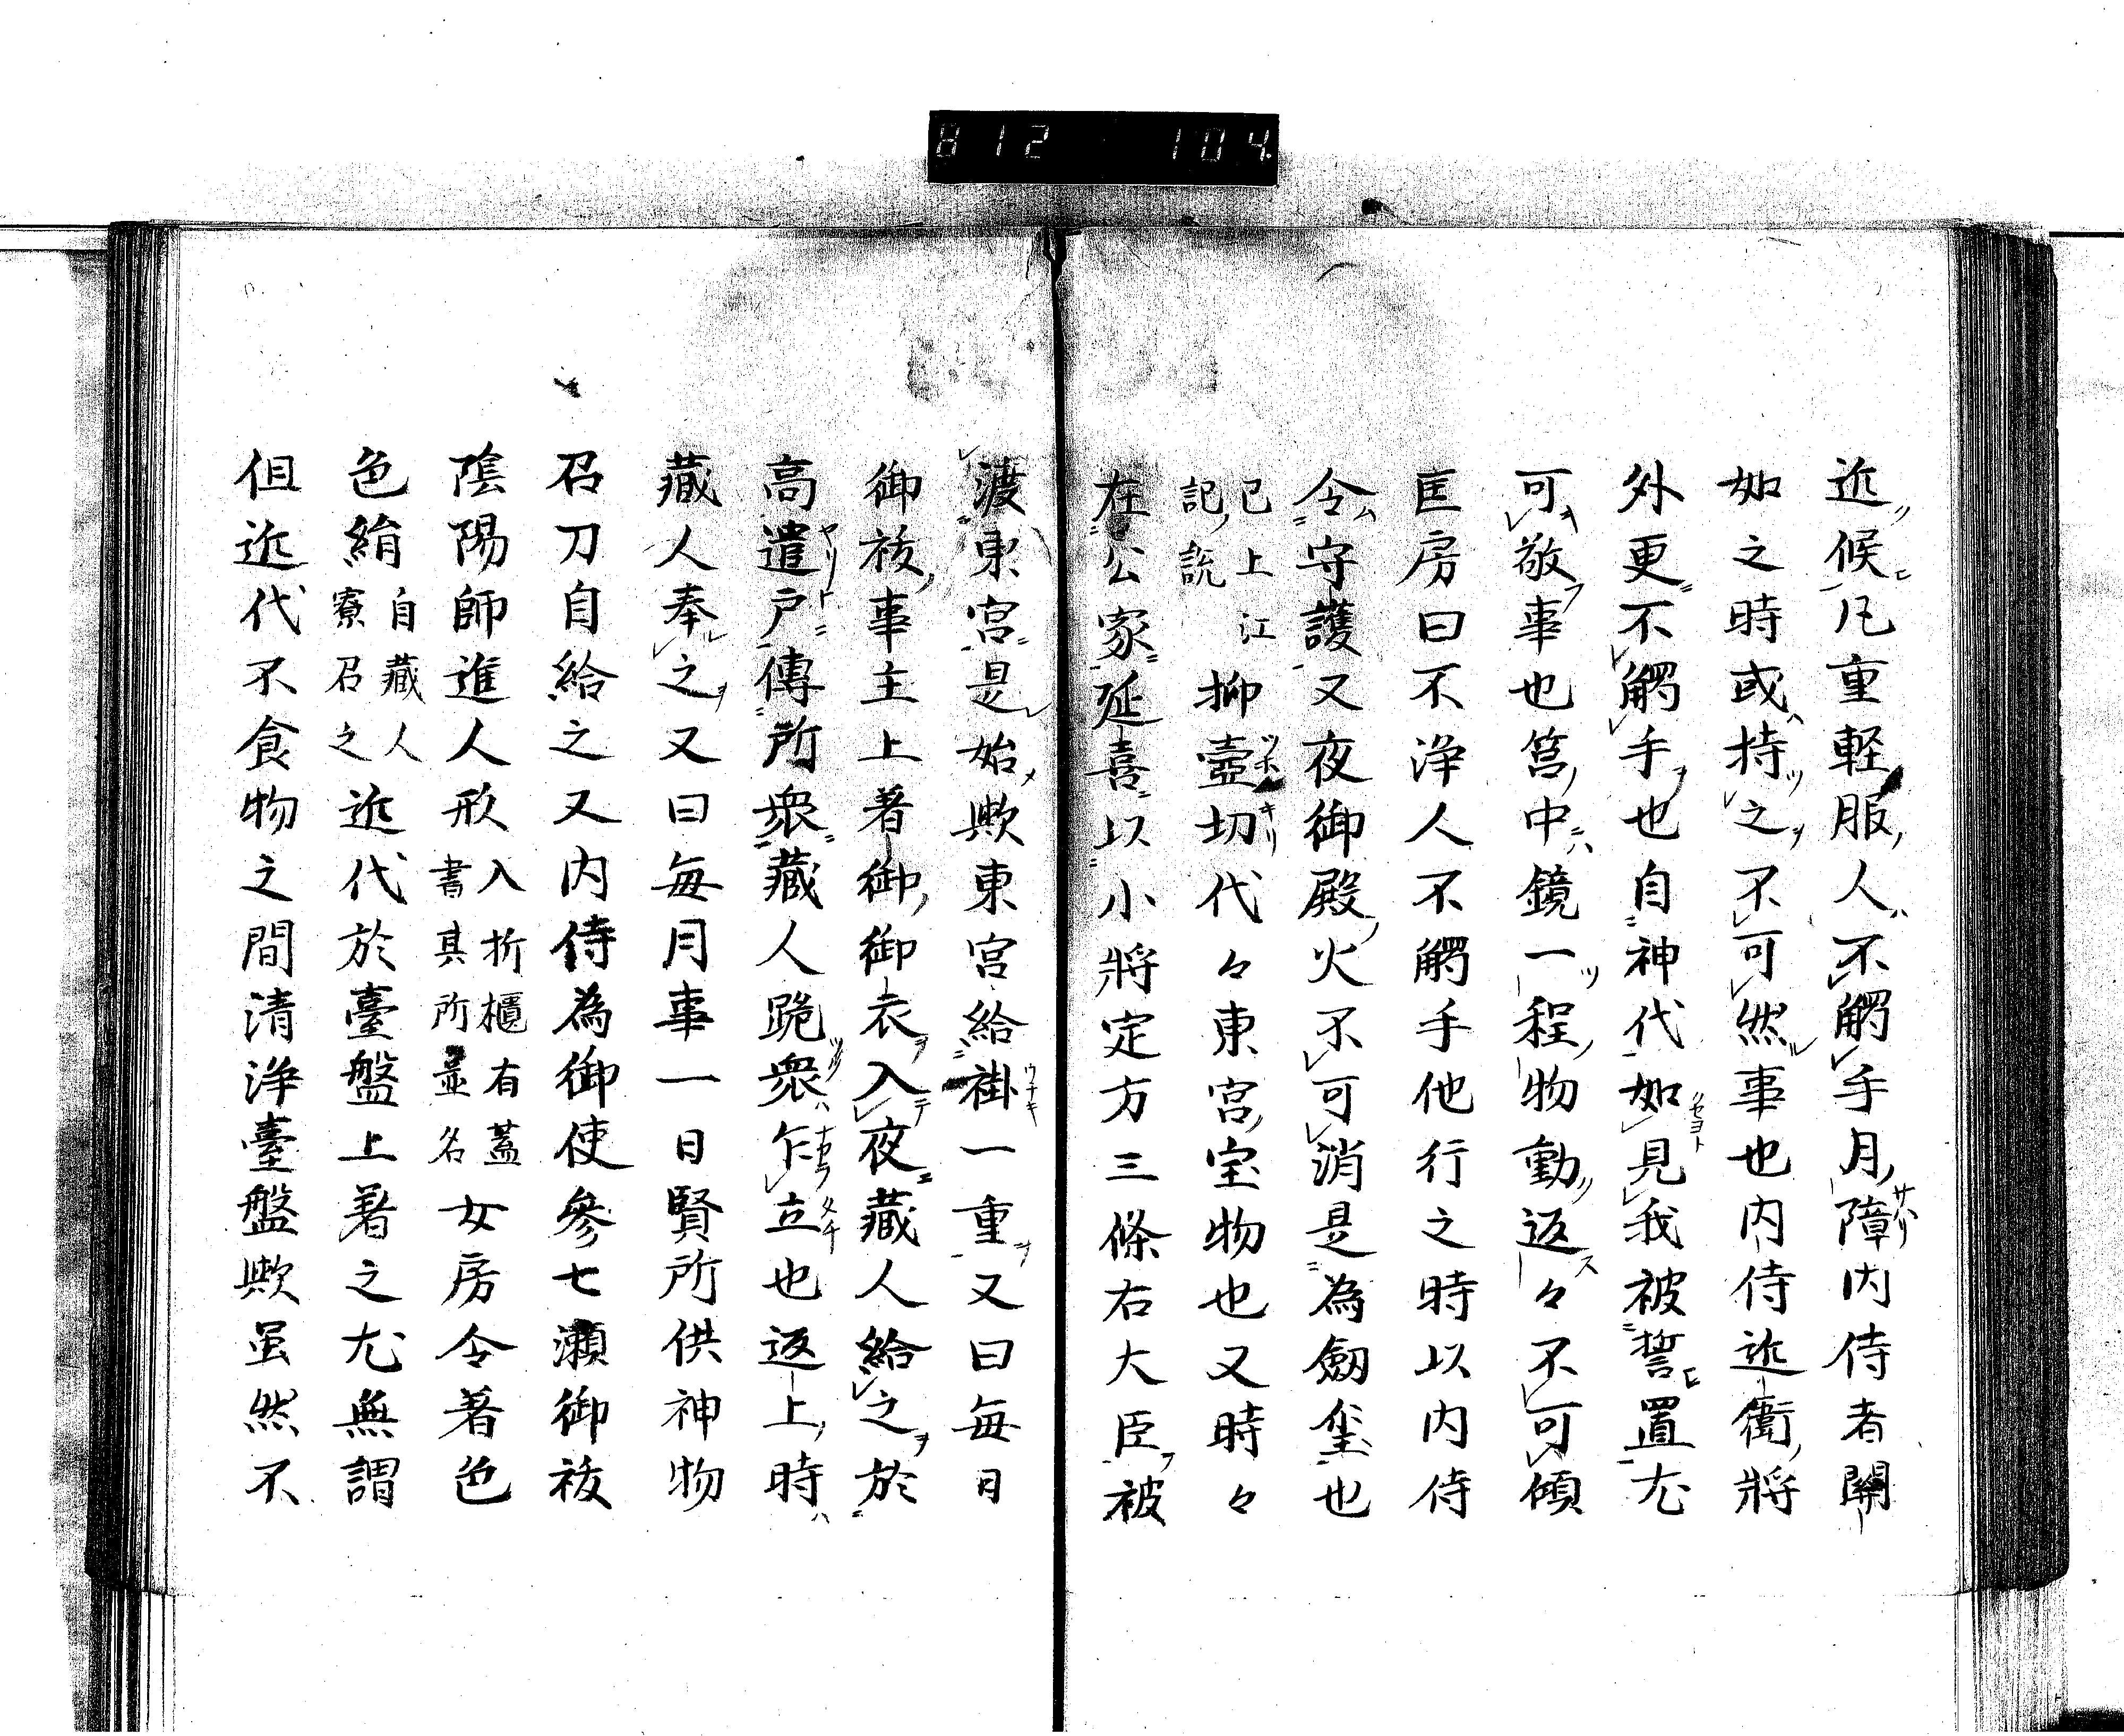 812 104.
近候凡重軽服人不觸手月障内侍者開
如之時或持之不可然事也内侍近衛将
外更不觸手也自神代如見我被誓置尤
可敬事也筥中鏡一程物動返々不可傾
匡房曰不浄人不觸手他行之時以内侍
令守護又夜御殿火不可消是為劔璽也
已上江記説抑壺切代々東宮宝物也又時々
在公家延喜以小将定方三條右大臣被
渡東宮是始歟東宮給褂一重又曰毎日
御祓事主上著御御衣入夜蔵人給之於
高遣戸傳所衆蔵人跪衆乍立也返上時
蔵人奉之又曰毎月事一日賢所供神物
召刀自給之又内侍為御使參七瀬御祓
陰陽師進人形入折櫃有蓋書其所並名女房令著色
色絹自蔵人寮召之近代於臺盤上著之尤無謂
但近代不食物之間清浄臺盤歟虽然不